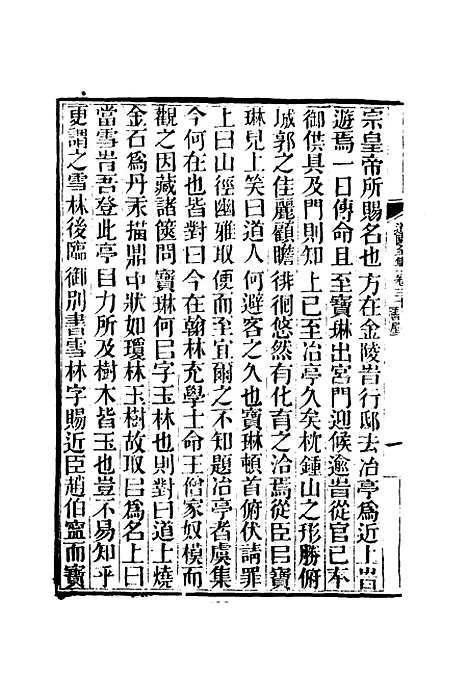 宗皇帝所賜名也方在金陵時行邸去冶亭為近上嘗
遊焉一日傳命且至寶琳出宮門迎候逾時從官已奉
御供具及門則知上已至冶亭久矣枕鍾山之形勝俯
城郭之佳麗顧瞻徘徊悠然有化育之洽焉從臣㠯寶
琳見上笑曰道人何避客之久也寶琳頓首俯伏請罪
上曰山徑幽雅取便而至宜爾之不知題冶亭者虞集
今何在也皆對曰今在翰林充學士命王僧家奴模而
觀之因藏諸篋問寶琳何㠯字玉林也則對曰道上燒
金石為丹汞描鼎中狀如瓊林玉樹故取㠯為名上曰
當雪時吾登此亭目力所及樹木皆玉也豈不易知乎
更謂之雪林後臨御別書雪林字賜近臣趙伯寍而寶